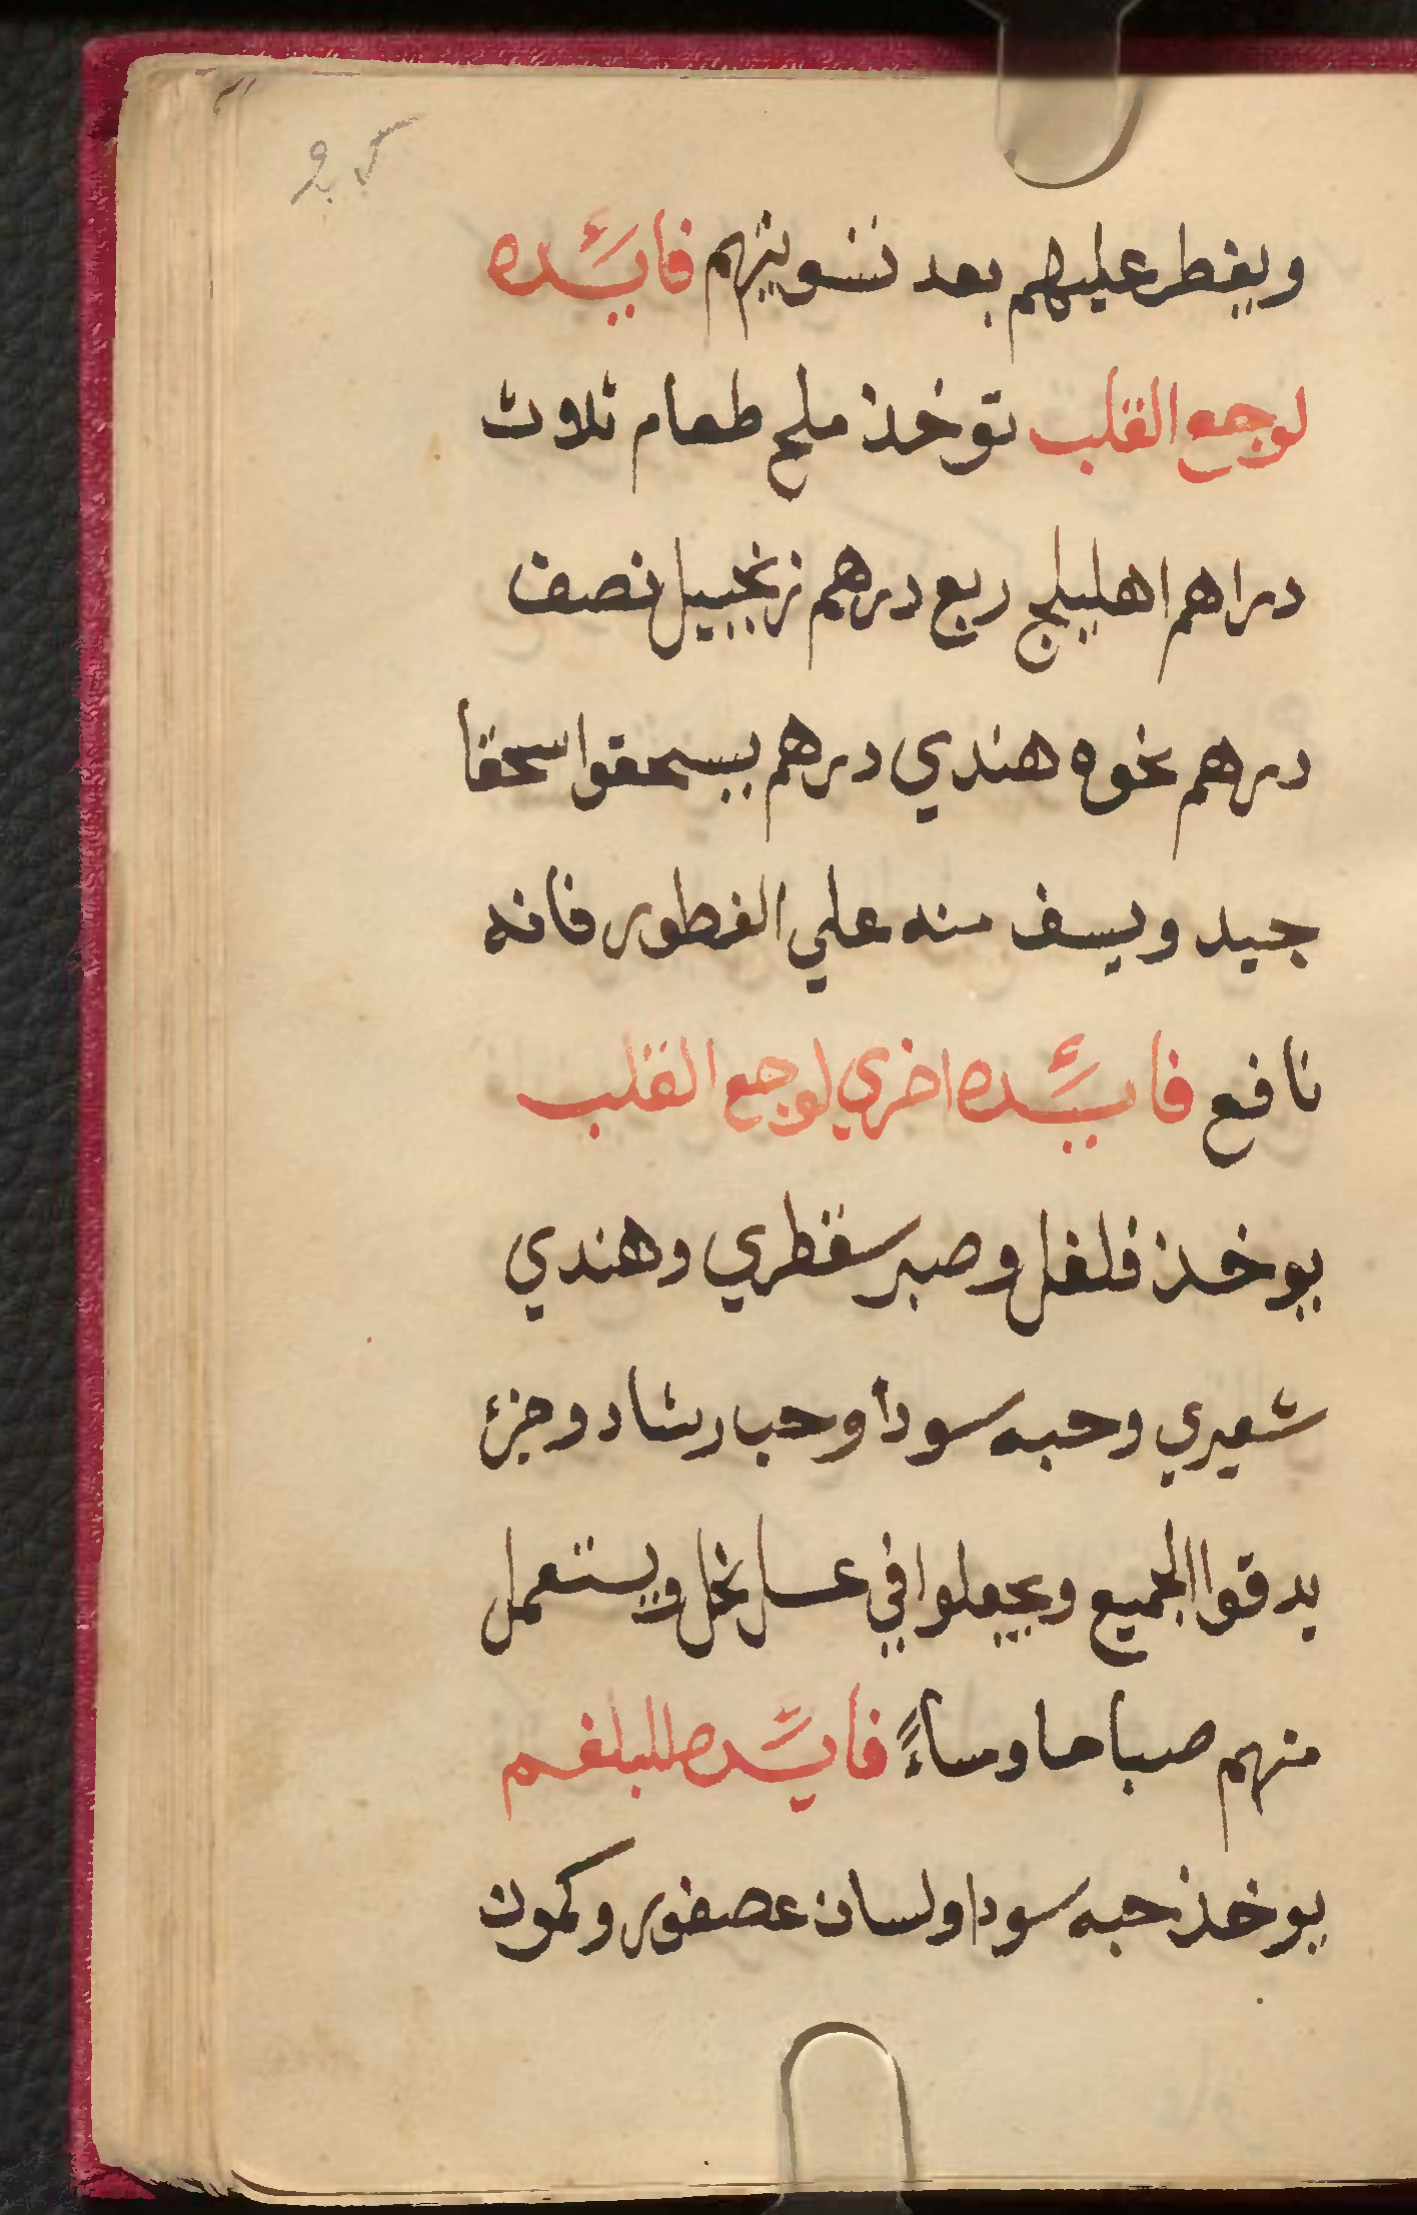 25
ويفطر عليهم بعد تسويتهم فايئده
لوجع القلب توخذ ملح طعام ثلاث
دراهم اهليلج ربع درهم زنجبيل نصف
درهم نخوه هندي درهم يسحقوا سحقا
جيد ويسف منه علي الفطور فانه
نافع فايئده اخري لوجع القلب
يوخذ فلفل وصبر سقطري وهندي
شعيري وحبه سودا وحب رشاد وجزء
يدقوا الجميع ويجعلوا في عسل نحل ويستعمل
منهم صباحا ومساءً فايئده للبلغم
يوخذ حبه سودا ولسان عصفور وكمون